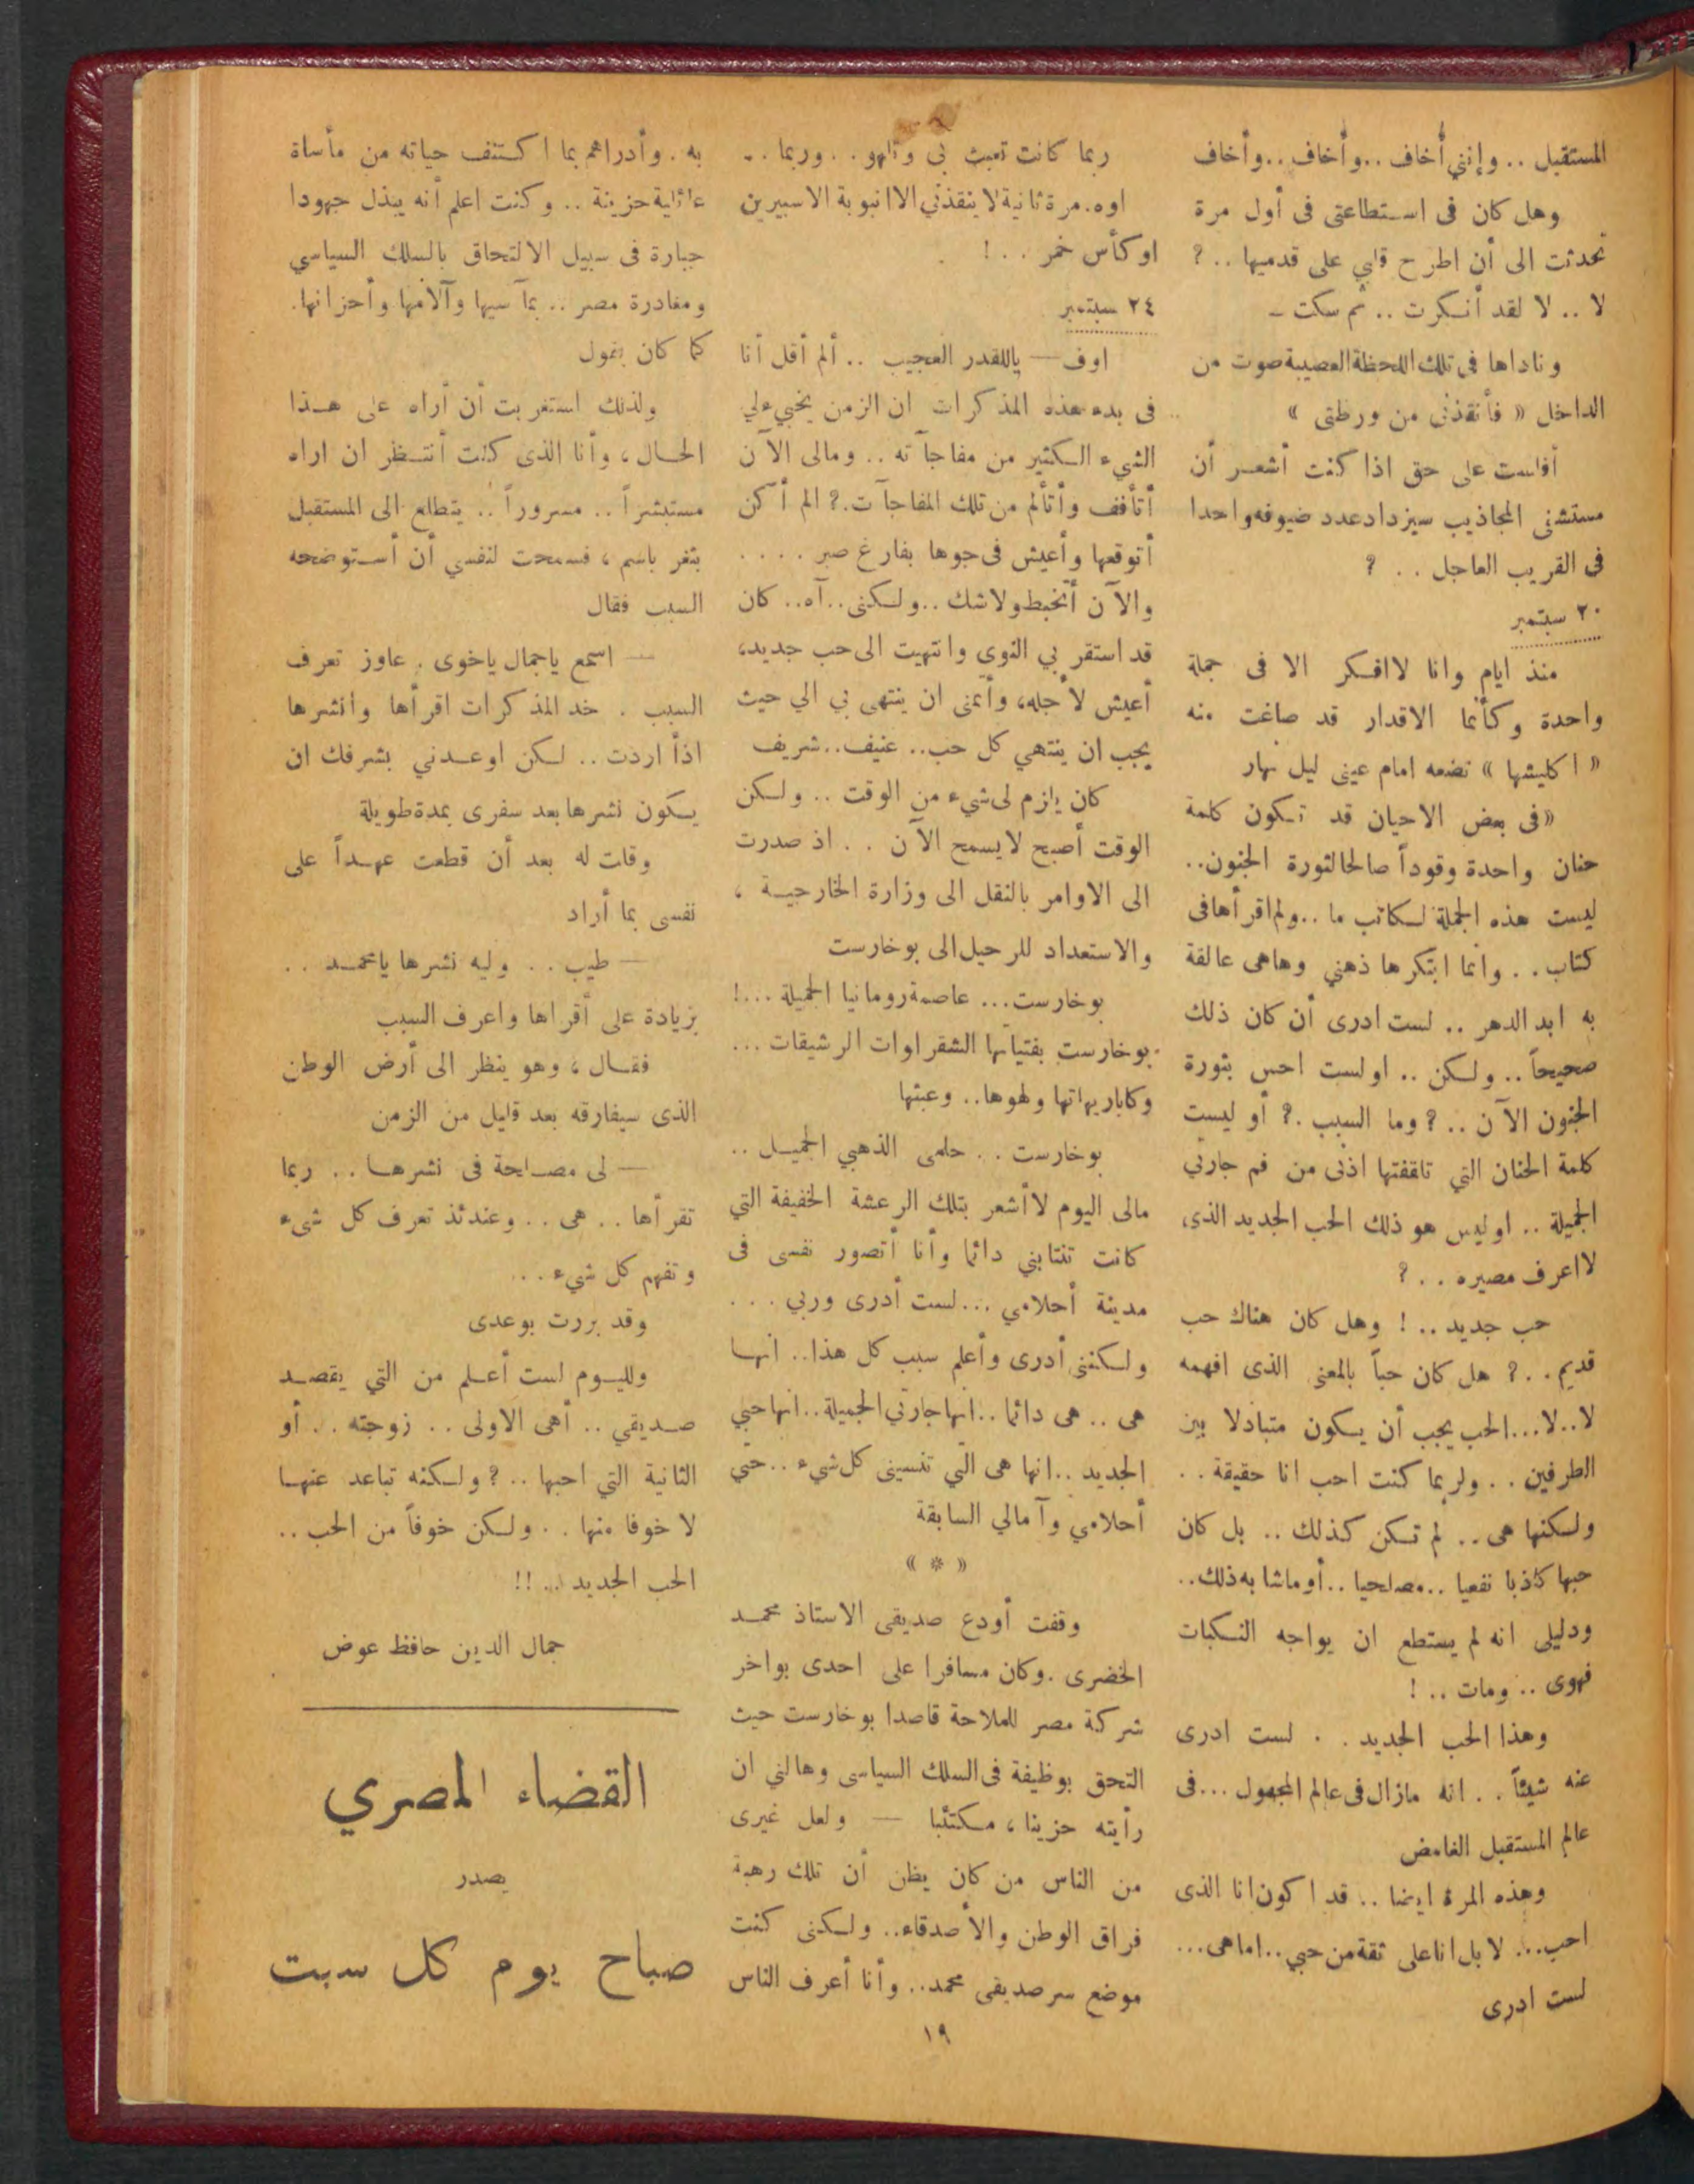 المستقبل .. وإنني أخاف ..وأخاف ..وأخاف
وهل كان فى استطاعتى فى أول مرة
تحدثت الى أن اطرح قلبي على قدميها .. ؟
لا .. لا لقد أنكرت .. ثم سكت ـ
وناداها فى تلك اللحظة العصيبة صوت من
الداخل « فأنقذنى من ورطتى »
أفلست على حق اذا كنت أشعر أن
مستشفى المجاذيب سيزداد عدد ضيوفه واحدا
فى القريب العاجل . . ؟
٢٠ سبتمبر
منذ ايام وانا لاافكر الا فى جملة
واحدة وكأنما الاقدار قد صاغت منه
« اكليشها » تضعه امام عينى ليل نهار
«فى بعض الاحيان قد تكون كلمة
حنان واحدة وقوداً صالحا لثورة الجنون..
ليست هذه الجملة لكاتب ما ..ولم اقرأها فى
كتاب . . وانما ابتكرها ذهني وهاهى عالقة
به ابد الدهر .. لست ادرى أن كان ذلك
صحيحاً .. ولكن .. اولست احس بثورة
الجنون الآن .. ؟ وما السبب .؟ أو ليست
كلمة الحنان التي تلقفتها اذنى من فم جارتي
الجميلة .. اوليس هو ذلك الحب الجديد الذى
لااعرف مصيره . . ؟
حب جديد .. ! وهل كان هناك حب
قديم . . ؟ هل كان حباً بالمعنى الذى افهمه
لا..لا...الحب يجب أن يكون متبادلا بين
الطرفين . . ولربما كنت احب انا حقيقة . .
ولكنها هى .. لم تكن كذلك .. بل كان
حبها كاذبا نفعيا ..مصلحيا ..أو ماشابه ذلك..
ودليلى انه لم يستطع ان يواجه النكبات
فهوى .. ومات .. !
وهذا الحب الجديد . . لست ادرى
عنه شيئاً . . انه مازال فى عالم المجهول ...فى
عالم المستقبل الغامض
وهذه المرة ايضا .. قد اكون انا الذى
احب... لا بل انا على ثقة من حبي..اماهى...
لست ادرى
ربما كانت تعبث بى وتلهو . . وربما ..
اوه. مرة ثانية لا ينقذني الا انبوبة الاسبيرين
او كأس خمر . . !
٢٤ سبتمبر
اوف — ياللقدر العجيب .. ألم أقل أنا
فى بدء هذه المذكرات ان الزمن يخبيء لي
الشيء الكثير من مفاجآته .. ومالى الآن
أتأفف وأتألم من تلك المفاجآت.؟ الم أكن
أتوقعها وأعيش فى جوها بفارغ صبر ....
والآن أتخبط ولاشك ..ولكنى..آه.. كان
قد استقر بي النوي وانتهيت الى حب جديد،
أعيش لأجله، وأتمنى ان ينتهى بي الي حيث
يجب ان ينتهي كل حب.. عنيف..شريف
كان يلزم لى شيء من الوقت .. ولكن
الوقت أصبح لا يسمح الآن . . اذ صدرت
الى الاوامر بالنقل الى وزارة الخارجية ،
والاستعداد للرحيل الى بوخارست
بوخارست... عاصمة رومانيا الجميلة ...!
بوخارست بفتياتها الشقراوات الرشيقات ...
وكاباريهاتها ولهوها.. وعبثها
بوخارست . . حلمى الذهبي الجميل ..
مالى اليوم لا أشعر بتلك الرعشة الخفيفة التي
كانت تنتابني دائما وأنا أتصور نفسى فى
مدينة أحلامي ... لست أدرى وربي . . .
ولكننى أدرى وأعلم سبب كل هذا.. انها
هى .. هى دائما ..انها جارتي الجميلة..انها حبي
الجديد ..انها هى التي تنسينى كل شيء ..حتي
أحلامي وآمالي السابقة
« * »
وقفت أودع صديقى الاستاذ محمد
الخضرى .وكان مسافرا على احدى بواخر
شركة مصر للملاحة قاصدا بوخارست حيث
التحق بوظيفة فى السلك السياسى وهالني ان
رأيته حزينا، مكتئبا — ولعل غيرى
من الناس من كان يظن أن تلك رهبة
فراق الوطن والأصدقاء.. ولكنى كنت
موضع سر صديقى محمد.. وأنا أعرف الناس
به . وأدراهم بما اكتنف حياته من مأساة
عائلية حزينة .. وكنت اعلم أنه يبذل جهودا
جبارة فى سبيل الالتحاق بالسلك السياسي
ومغادرة مصر .. بمآسيها وآلامها وأحزانها.
كما كان يقول
ولذلك استغربت أن أراه على هذا
الحال ، وأنا الذى كنت أنتظر ان اراه
مستبشراً .. مسروراً .. يتطلع الى المستقبل
بثغر باسم ، فسمحت لنفسي أن أستوضحه
السبب فقال
— اسمع ياجمال ياخوى . عاوز تعرف
السبب . خد المذكرات اقرأها وانشرها
اذاً اردت .. لكن اوعدني بشرفك ان
يكون نشرها بعد سفرى بمدة طويلة
وقلت له بعد أن قطعت عهداً على
نفسى بما أراد
— طيب . . وليه نشرها يامحمد . .
بزيادة على أقراها واعرف السبب
فقال ، وهو ينظر الى أرض الوطن
الذى سيفارقه بعد قليل من الزمن
— لى مصلحة فى نشرها . . ربما
تقرأها . . هى . . وعندئذ تعرف كل شىء
وتفهم كل شيء . . .
وقد بررت بوعدى
ولليوم لست أعلم من التي يقصد
صديقي .. أهى الاولى . . زوجته . . أو
الثانية التي احبها .. ؟ ولكنه تباعد عنها
لا خوفا منها . . ولكن خوفاً من الحب ..
الحب الجديد .. !!
جمال الدين حافظ عوض
القضاء المصري
يصدر
صباح يوم كل سبت
١٩